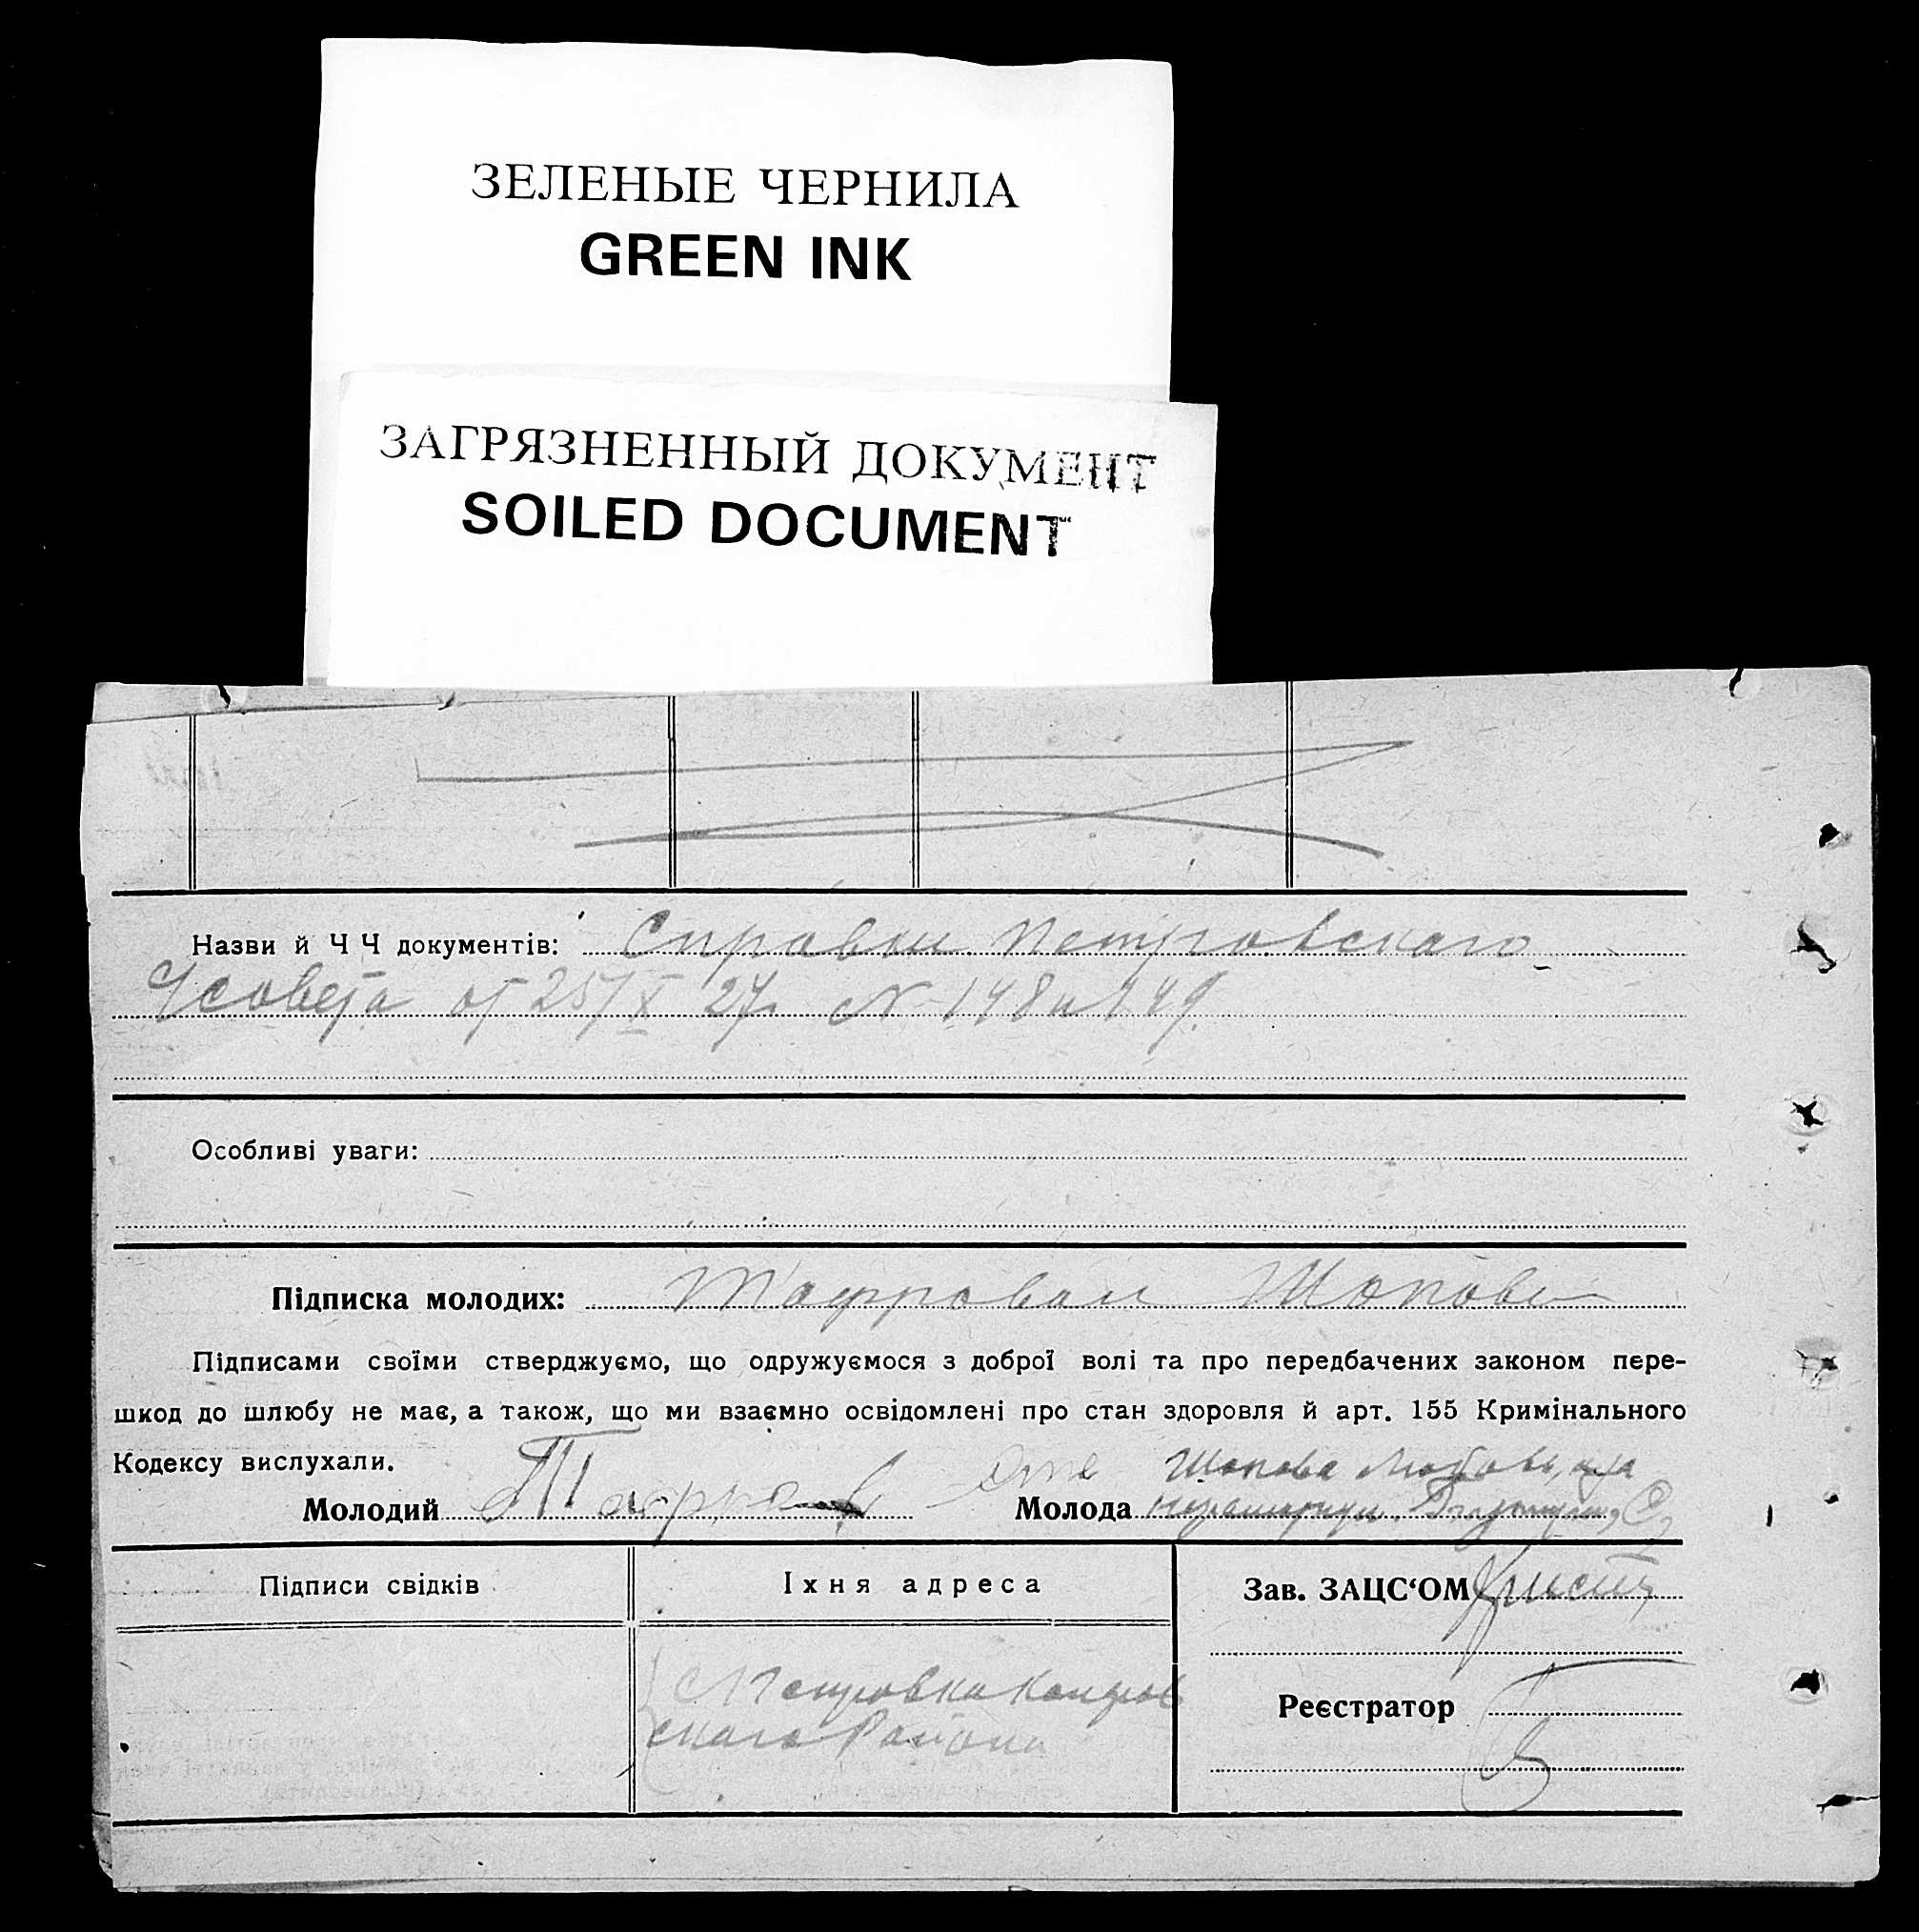 ЗЕЛЕНЫЕ ЧЕРНИЛА
GREEN INK
ЗАГРЯЗНЕННЫЙ ДОКУМЕНТ
SOILED DOCUMENT
Назви й Ч Ч документів: Справки Петровского
совета от 25/X 27г. N 148 и 149.
Особливі уваги:
Підписка молодих:
Підписами своїми стверджуємо, що одружуємося з доброї волі та про передбачених законом пере-
шкод до шлюбу не має, а також, що ми взаємно освідомлені про стан здоровля й арт. 155 Кримінального
Кодексу вислухали.
Шопова Любовь, а за
Молодий Молода
Підписи свідків Їхня адреса Зав. ЗАЦС‘ОМ
С Петровка
Реєстратор
ского Района